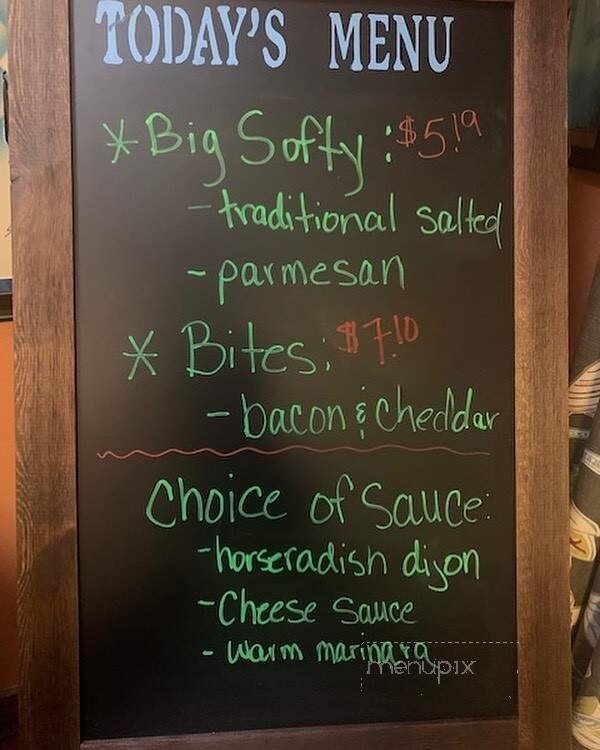 TODAY'S MENU
* Big Softy: $5.19
- traditional salted
- parmesan
* Bites: $7.10
- bacon & Cheddar
Choice of Sauce:
- horseradish dijon
- Cheese Sauce
- warm marinara
menupix